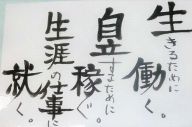 生きるために
働く。
自立するために
稼ぐ。
生涯の仕事に
就く。